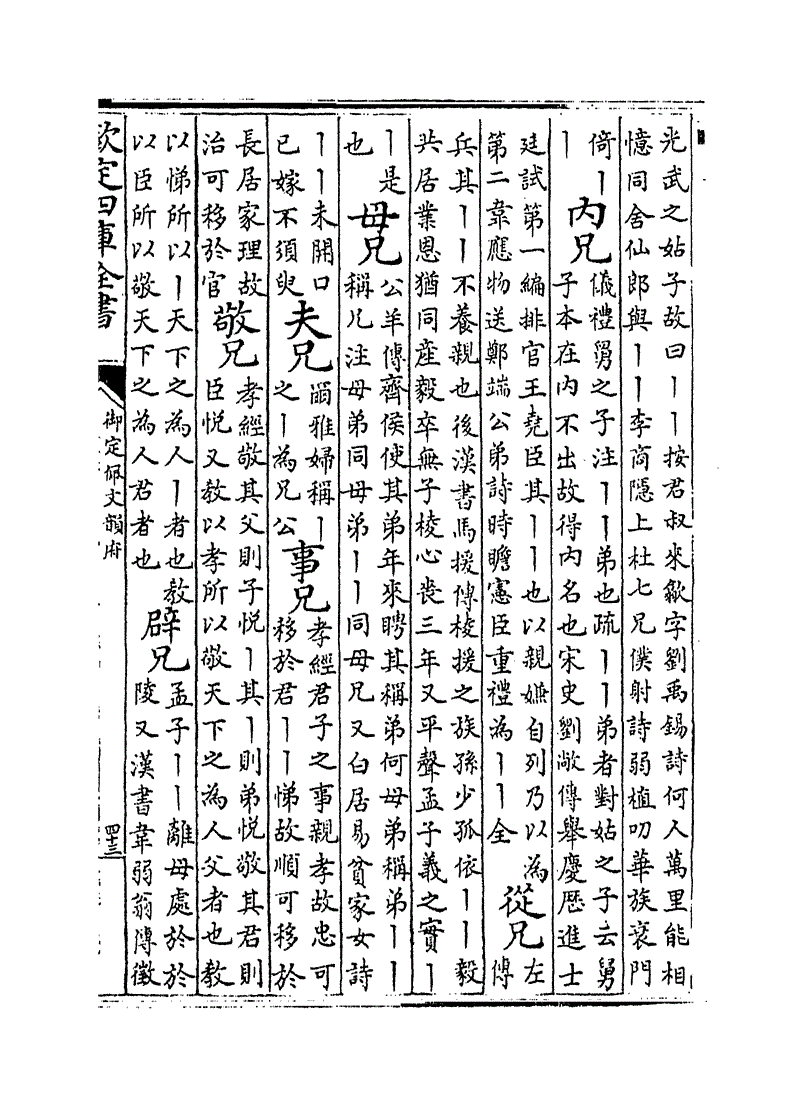 光武之姑子故曰｜｜按君叔來歙字劉禹錫詩何人萬里能相
憶同舍仙郎與｜｜李商隱上杜七兄僕射詩弱植叨華族衰門
倚｜
｜
內兄
儀禮舅之子注｜｜弟也疏｜｜弟者對姑之子云舅
子本在內不出故得內名也宋史劉敞傳舉慶歷進士
廷試第一編排官王堯臣其｜｜也以親嫌自列乃以為
第二韋應物送鄭端公弟詩時瞻憲臣重禮為｜｜全
從兄
左
傳
兵其｜｜不養親也後漢書馬援傳棱援之族孫少孤依｜｜毅
共居業恩猶同産毅卒無子棱心喪三年又平聲孟子義之實｜
｜是
也
母兄
公羊傳齊侯使其弟年來聘其稱弟何母弟稱弟｜｜
稱兄注母弟同母弟｜｜同母兄又白居易貧家女詩
｜｜未開口
已嫁不須臾
夫兄
爾雅婦稱｜
之｜為兄公
事兄
孝經君子之事親孝故忠可
移於君｜｜悌故順可移於
長居家理故
治可移於官
敬兄
孝經敬其父則子悅｜其｜則弟悅敬其君則
臣悅又教以孝所以敬天下之為人父者也教
以悌所以｜天下之為人｜者也教
以臣所以敬天下之為人君者也
辟兄
孟子｜｜離母處於於
陵又漢書韋弱翁傳徵
欽定四庫全書
御定佩文韻府
四十三